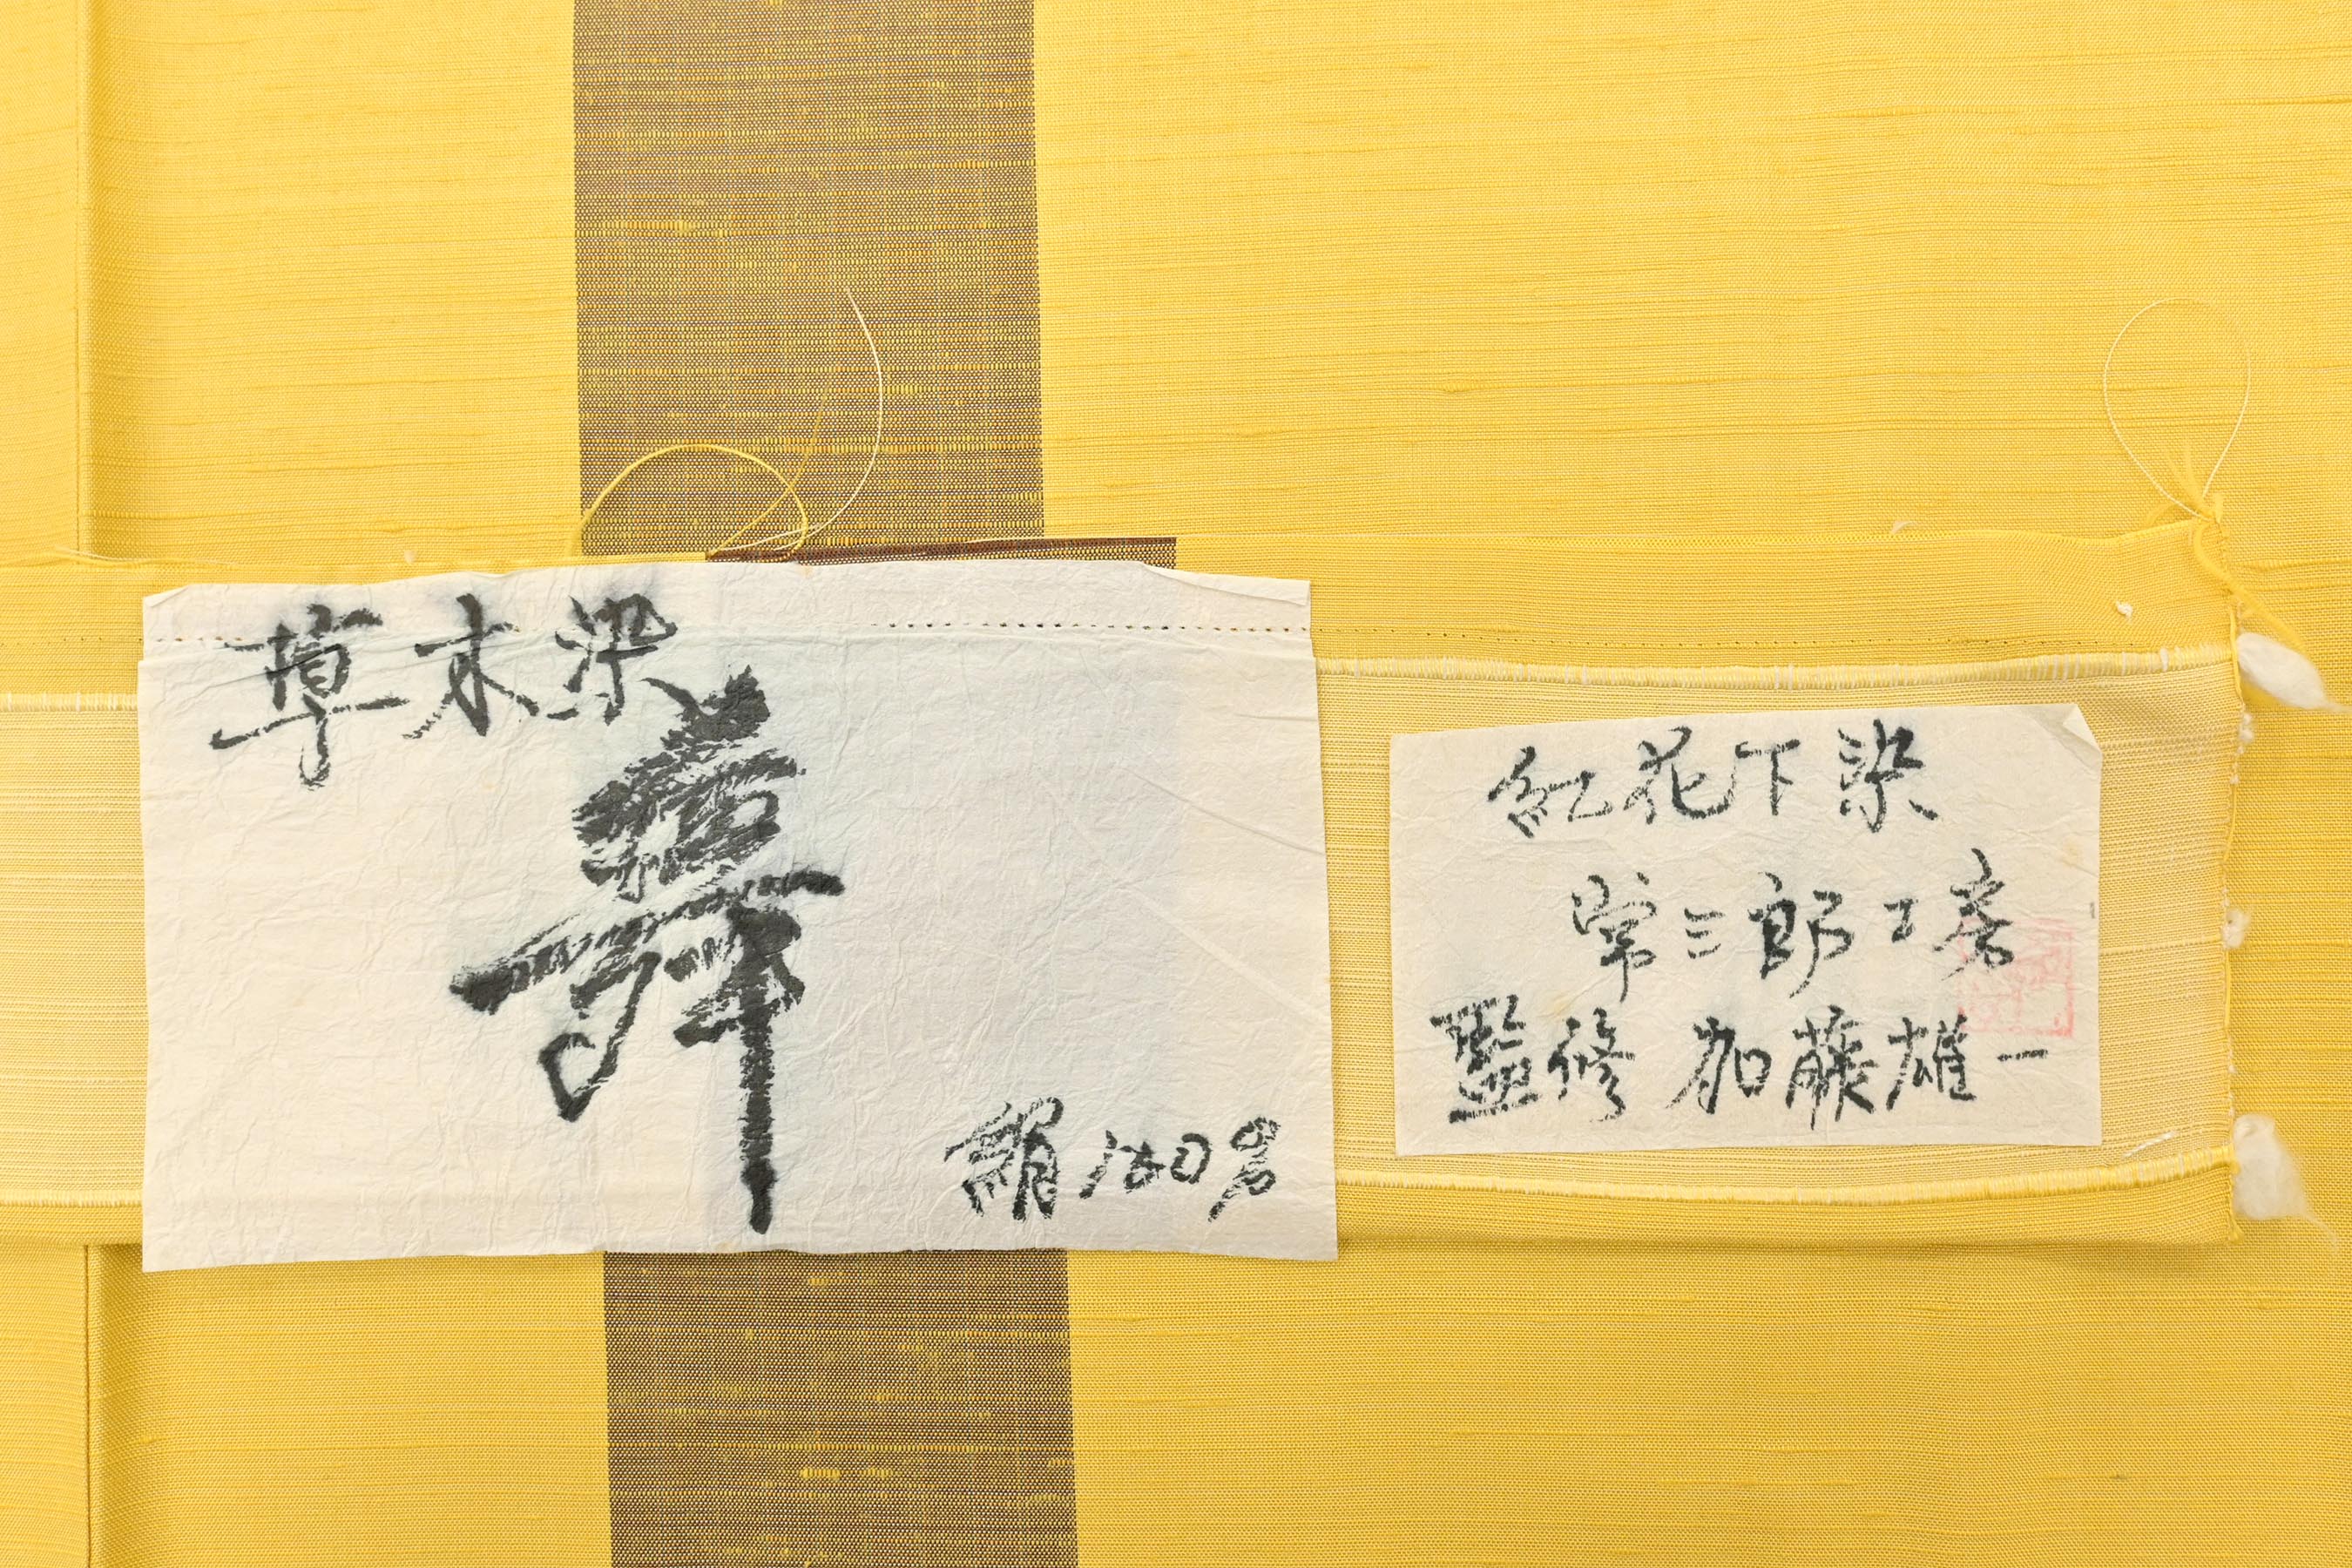 草木染
舞
絹100%
紅花下染
常三郎工房
監修 加藤雄一